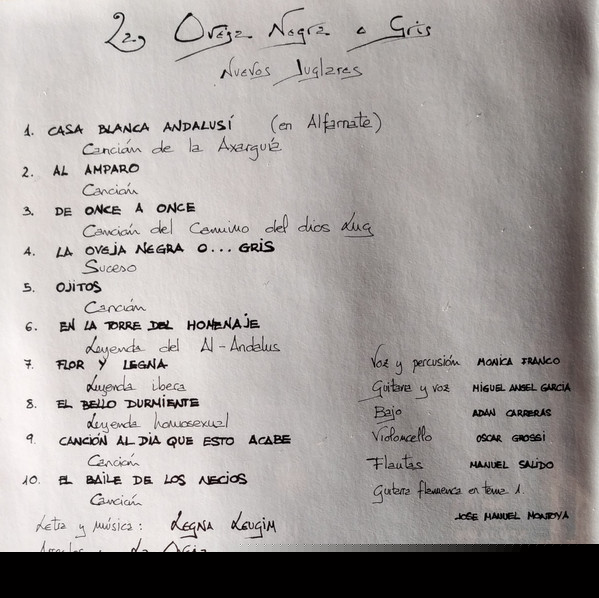 La Oveja Negra o Gris
Nuevos Juglares
1. CASA BLANCA ANDALUSÍ (en Alfarnate)
Canción de la Axarquía
2. AL AMPARO
Canción
3. DE ONCE A ONCE
Canción del Camino del dios Lug
4. LA OVEJA NEGRA O... GRIS
Suceso
5. OJITOS
Canción
6. EN LA TORRE DEL HOMENAJE
Leyenda del Al-Andalus
7. FLOR Y LEGNA
Leyenda ibera
8. EL BELLO DURMIENTE
Leyenda homosexual
9. CANCIÓN AL DIA QUE ESTO ACABE
Canción
10. EL BAILE DE LOS NECIOS
Canción
Letra y música: LEGNA LEUGIM
Voz y percusión MONICA FRANCO
Guitarra y voz MIGUEL ANGEL GARCIA
Bajo ADAN CARRERAS
Violoncello OSCAR GROSSI
Flautas MANUEL SALIDO
Guitarra flamenca en tema 1.
JOSE MANUEL MONTOYA